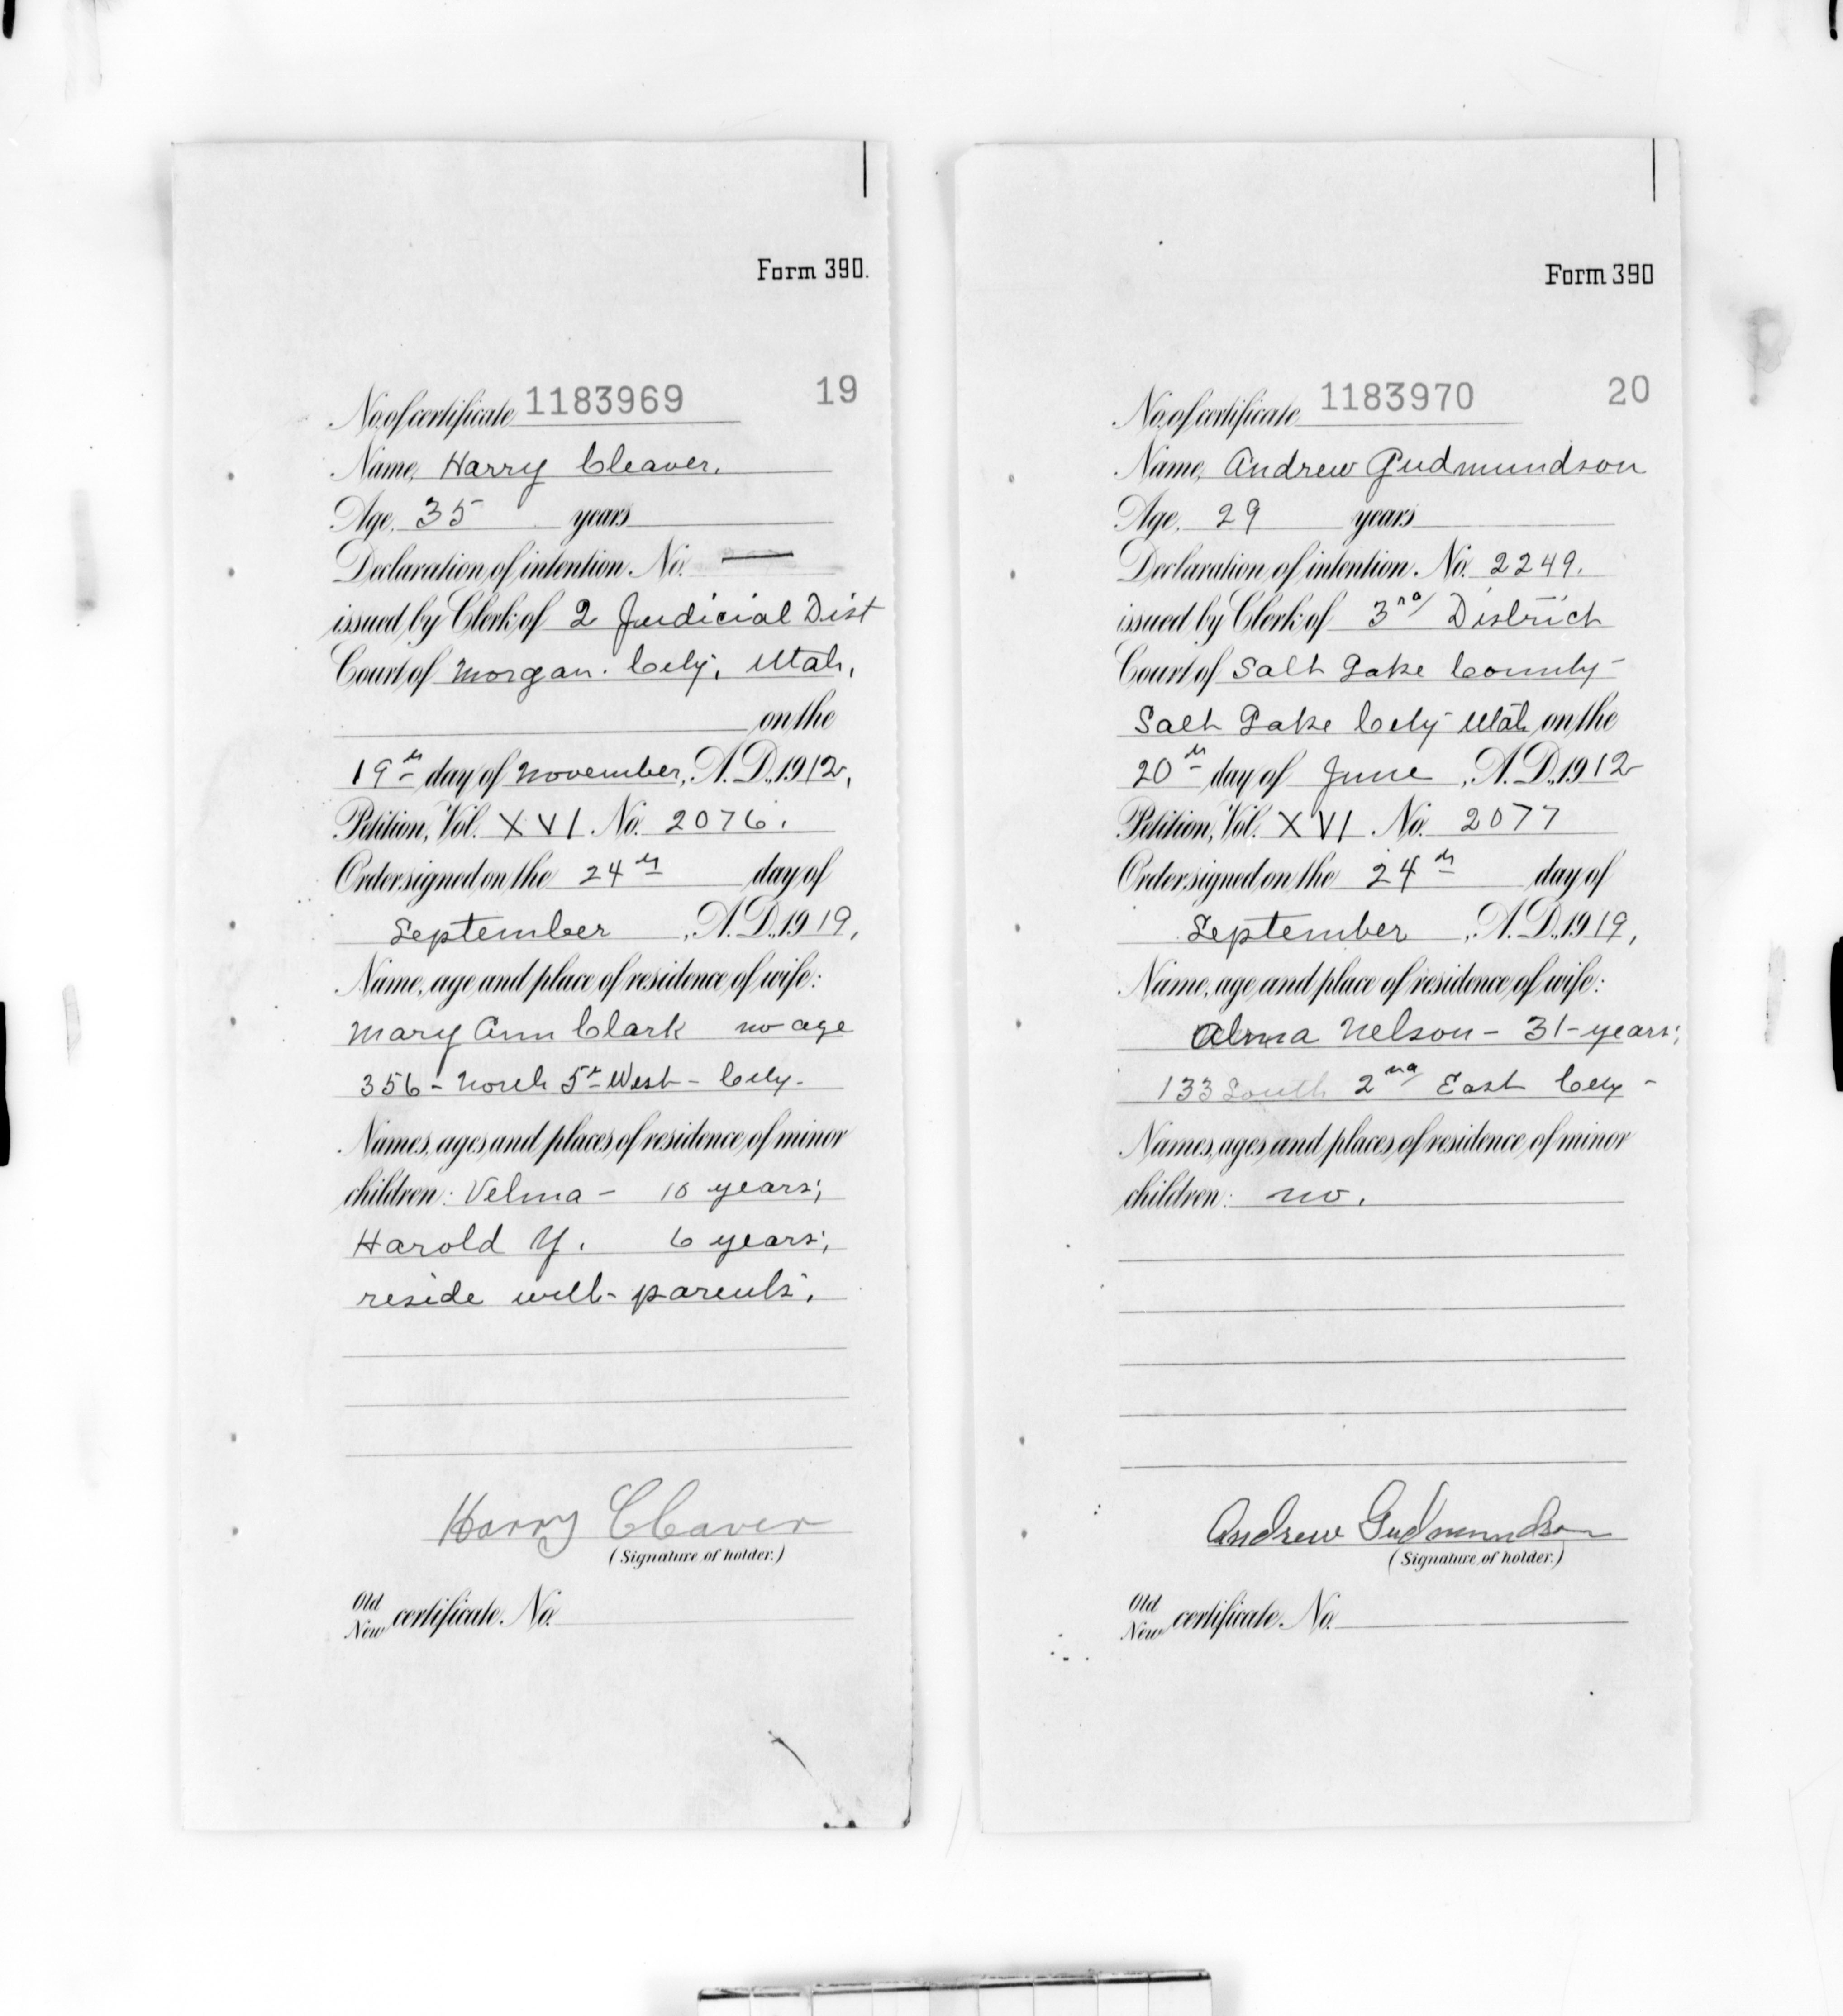 Form 390.
No. of certificate 1183969 19
Name, Harry Cleaver.
Age, 35 years
Declaration of intention. No. —
issued by Clerk of 2 Judicial Dist
Court of Morgan. City, Utah,
on the
19th day of November, A. D., 1912,
Petition, Vol. XVI. No. 2076.
Order signed on the 24th day of
September, A. D., 1919,
Name, age and place of residence of wife:
Mary Ann Clark no age
356 - North 5th West - City -
Names, ages and places of residence of minor
children: Velma - 10 years;
Harold Y. 6 years;
reside with - parents.
Harry Cleaver
(Signature of holder.)
Old
New certificate. No.
Form 390
No. of certificate 1183970 20
Name, Andrew Gudmundson
Age, 29 years
Declaration of intention. No. 2249.
issued by Clerk of 3rd District
Court of Salt Lake County -
Salt Lake City - Utah on the
20th day of June, A. D., 1912
Petition, Vol. XVI. No. 2077
Order signed on the 24th day of
September, A. D., 1919,
Name, age and place of residence of wife:
Alma Nelson - 31 - years;
133 South 2nd East City -
Names, ages and places of residence of minor
children: no.
Andrew Gudmundson
(Signature of holder.)
Old
New certificate. No.